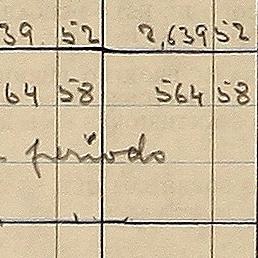 39 52 2,639 52
64 58 564 58
periodo